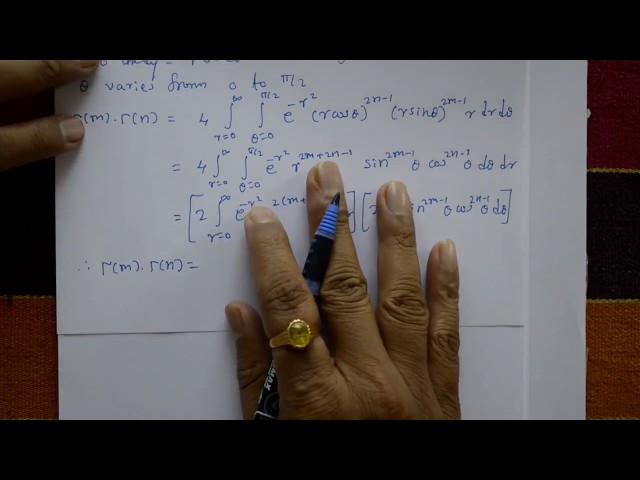 θ varies from 0 to π/2
Γ(m). Γ(n) = 4 ∫_{r=0}^{∞} ∫_{θ=0}^{π/2} e^{-r²} (r cosθ)^{2n-1} (r sinθ)^{2m-1} r dr dθ
= 4 ∫_{r=0}^{∞} ∫_{θ=0}^{π/2} e^{-r²} r^{2m+2n-1} sin^{2m-1} θ cos^{2n-1} θ dθ dr
= [2 ∫_{r=0}^{∞} e^{-r²} 2(m+ ] [2 sin^{2m-1} θ cos^{2n-1} θ dθ]
∴ Γ(m). Γ(n) =